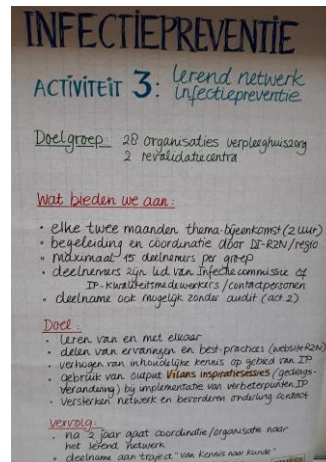 INFECTIEPREVENTIE
ACTIVITEIT 3: lerend netwerk
infectiepreventie
Doelgroep: 28 organisaties verpleeghuiszorg
2 revalidatiecentra
Wat bieden we aan:
• elke twee maanden thema-bijeenkomst (2 uur)
• begeleiding en coördinatie door DI-R2N/regio
• maximaal 15 deelnemers per groep
• deelnemers zijn lid van Infectiecommissie of
IP-kwaliteitsmedewerkers/contactpersonen
• deelname ook mogelijk zonder audit (act. 2)
Doel:
• leren van en met elkaar
• delen van ervaringen en best-practices (website R2N)
• verhogen van inhoudelijke kennis op gebied van IP
• gebruik van output Vilans inspiratiesessies (gedrags-
verandering) bij implementatie van verbeterpunten IP
• versterken netwerk en bevorderen onderling contact
Vervolg:
• na 2 jaar gaat coördinatie/organisatie naar
het lerend netwerk
• deelname aan traject "van kennis naar kunde"